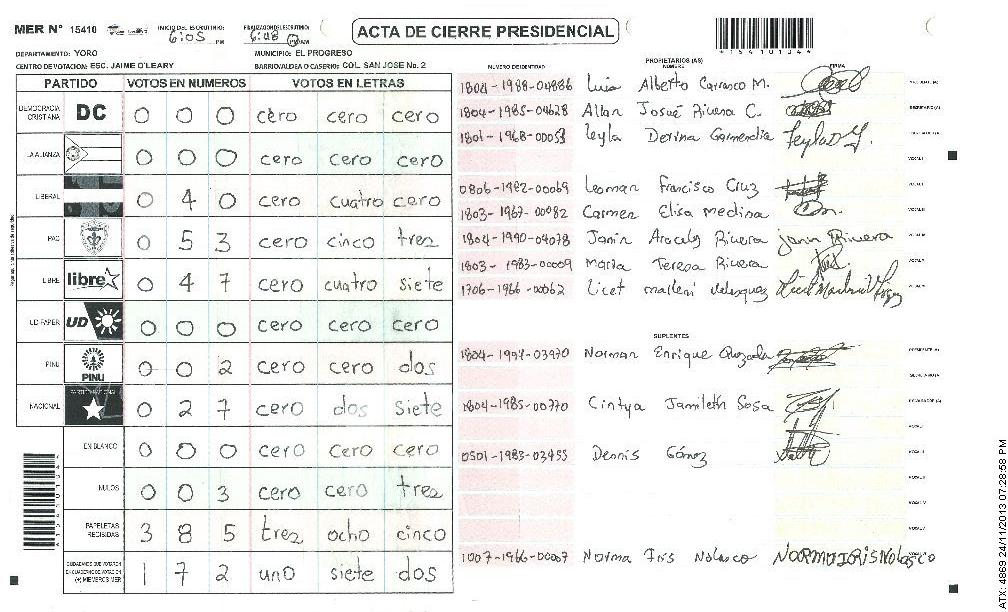 MER N° 15410
INICIO DEL ESCRUTINIO: 6:05 PM
FINALIZACION DEL ESCRUTINIO: 6:48 PM
ACTA DE CIERRE PRESIDENCIAL
154101344
DEPARTAMENTO: YORO
MUNICIPIO: EL PROGRESO
CENTRO DE VOTACION: ESC. JAIME O'LEARY
BARRIO/ALDEA O CASERIO: COL. SAN JOSE No. 2
PARTIDO VOTOS EN NUMEROS VOTOS EN LETRAS
DEMOCRACIA CRISTIANA DC 0 0 0 cero cero cero
LA ALIANZA 0 0 0 cero cero cero
LIBERAL 0 4 0 cero cuatro cero
PAC 0 5 3 cero cinco tres
LIBRE libre 0 4 7 cero cuatro siete
UD FAPER UD 0 0 0 cero cero cero
PINU PINU 0 0 2 cero cero dos
NACIONAL 0 2 7 cero dos siete
EN BLANCO 0 0 0 cero cero cero
NULOS 0 0 3 cero cero tres
PAPELETAS RECIBIDAS 3 8 5 tres ocho cinco
CIUDADANOS QUE VOTARON EN CUADERNO DE VOTACION (+) MIEMBROS MER 1 7 2 uno siete dos
PROPIETARIOS (AS)
NUMERO DE IDENTIDAD NOMBRE FIRMA
1804-1988-04886 Luis Alberto Carrasco M.
1804-1985-04628 Allan Josué Rivera C.
1801-1968-00053 Leyla Derina Garmendia
0806-1982-00069 Leoman Francisco Cruz
1803-1967-00082 Carmen Elisa Medina
1804-1990-04078 Janin Aracely Rivera Janin Rivera
1803-1983-00009 Maria Teresa Rivera
1706-1966-00062 Licet Marleni Velasquez
SUPLENTES
1804-1994-03970 Norman Enrique Quezada
1804-1985-00770 Cintya Jamileth Sosa
0501-1983-03455 Dennis Gómez
1007-1966-00067 Norma Iris Nolasco NORMA IRIS NOLASCO
ATX: 4869 24/11/2013 07:28:58 PM